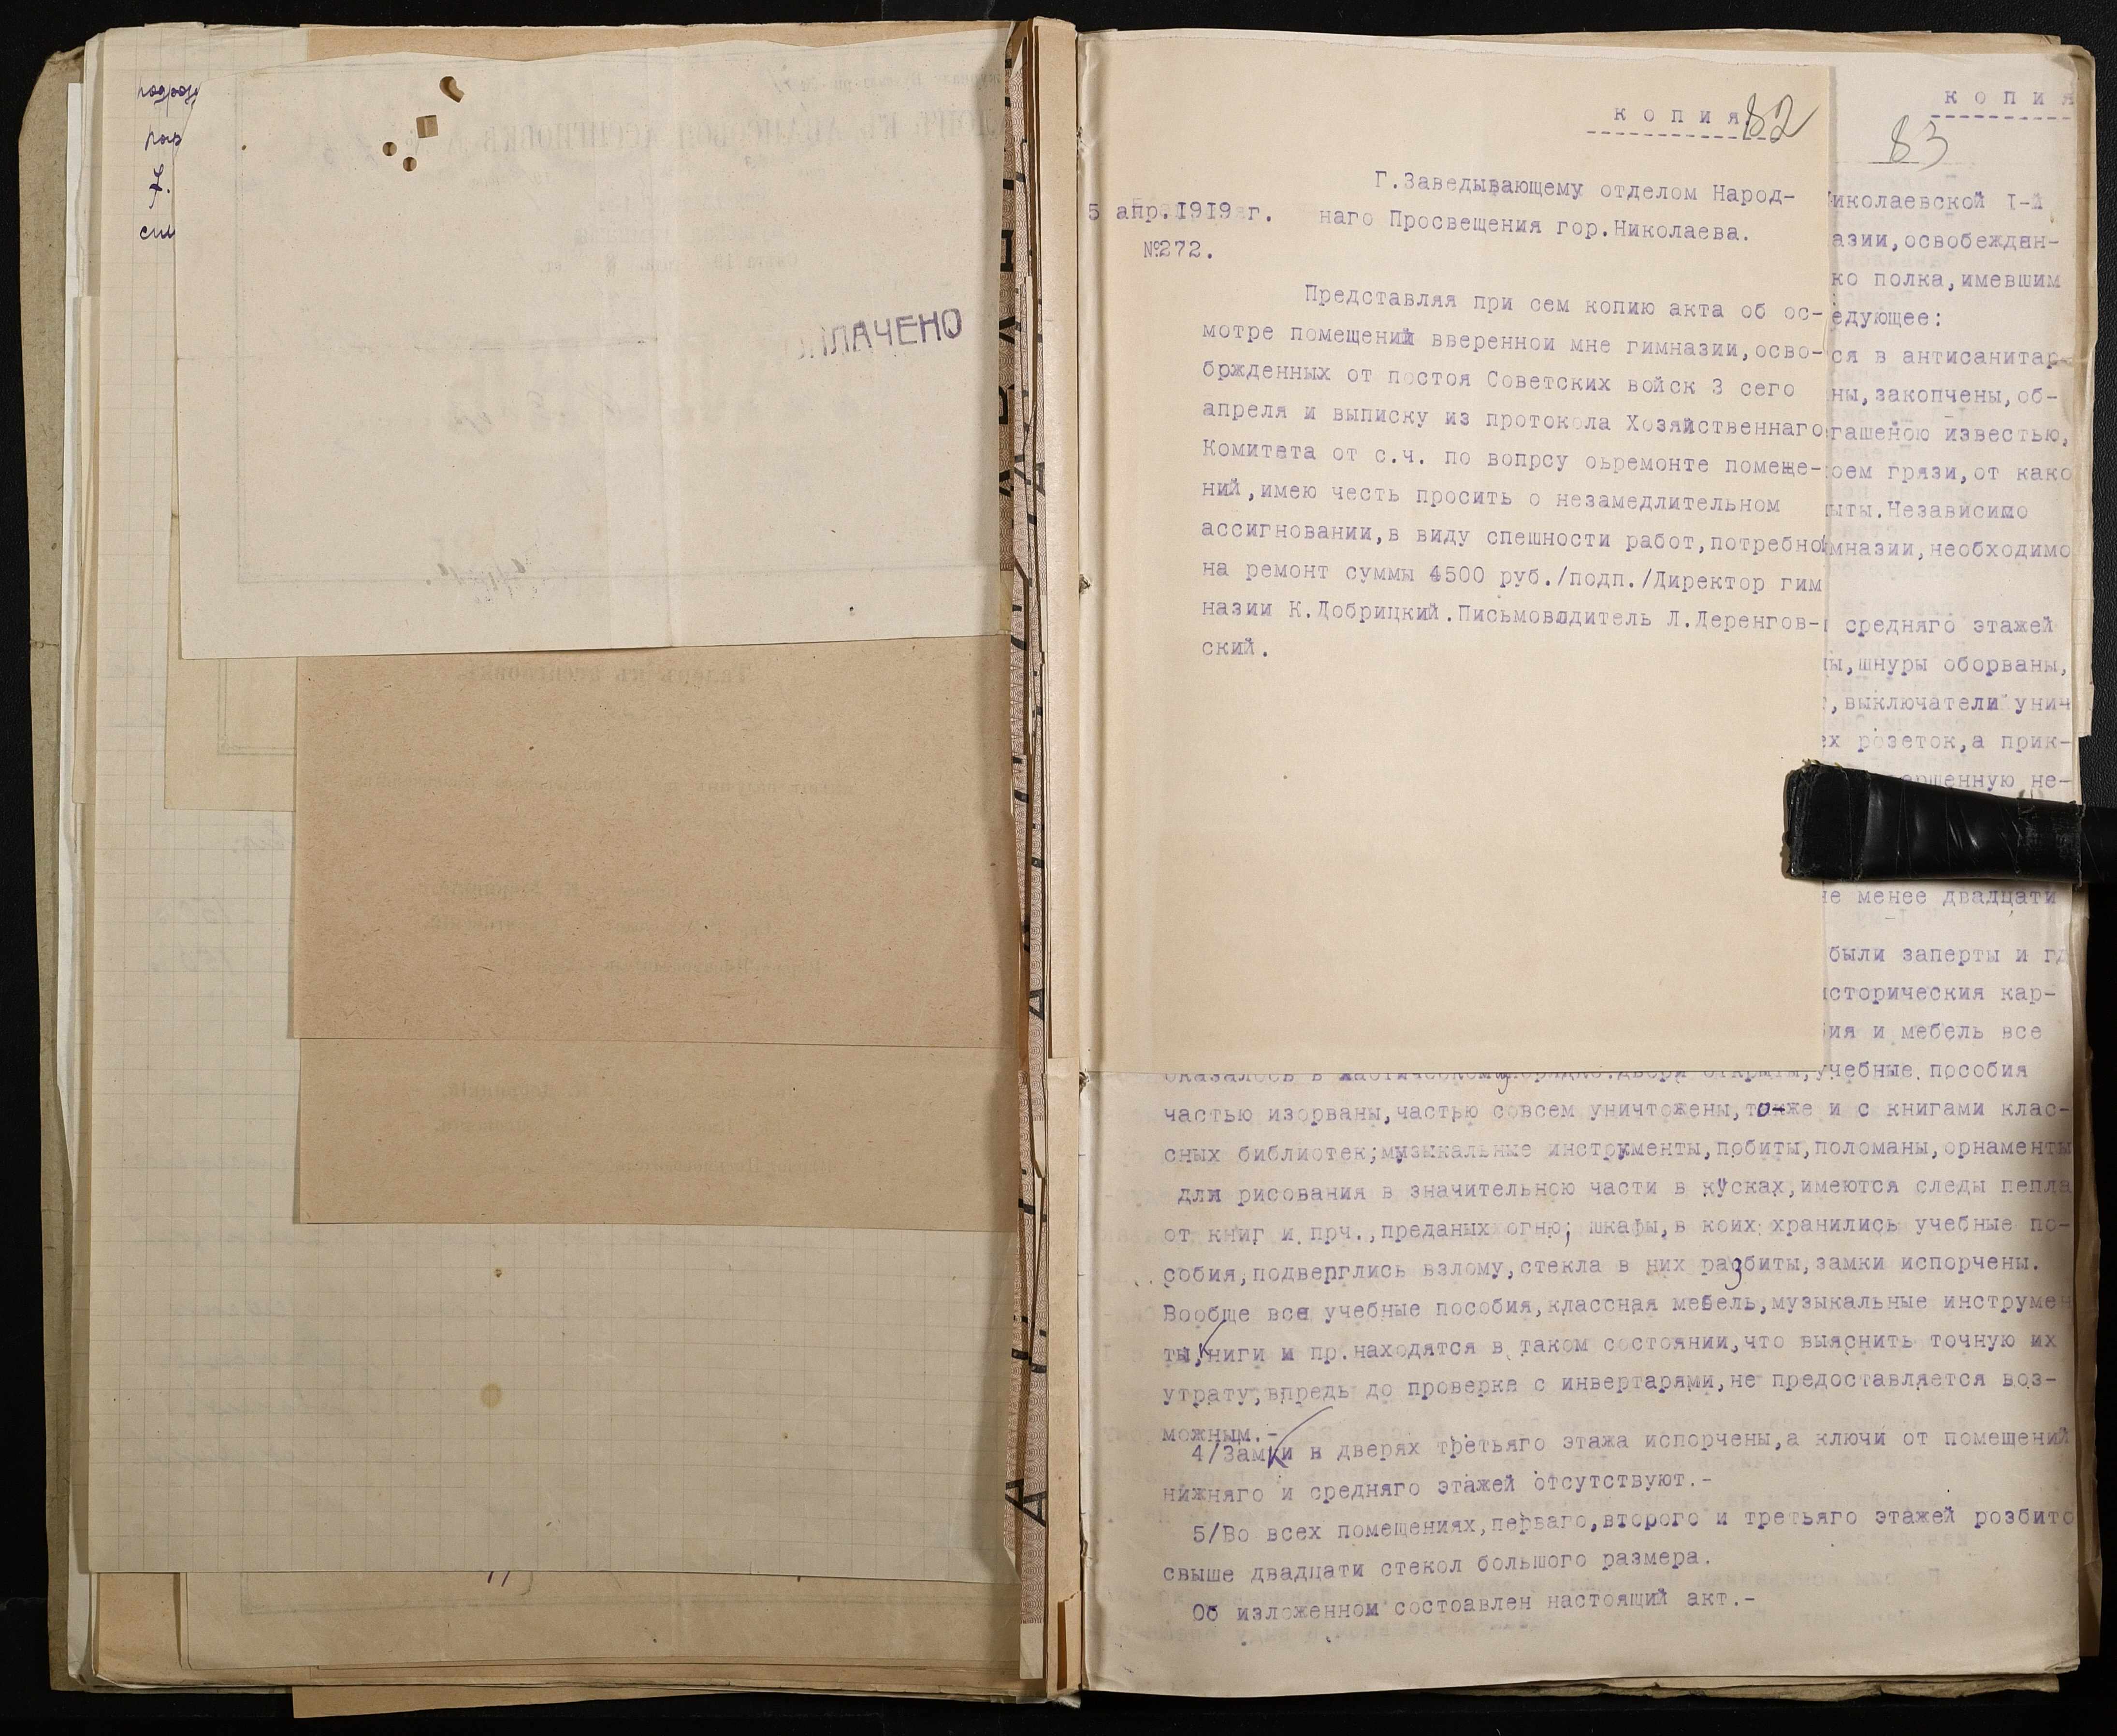 7.
ПЛАЧЕНО
копия
82
Г.Заведывающему отделом Народ-
5 апр.1919 г. наго Просвещения гор.Николаева.
№272.
Представляя при сем копию акта об ос-
мотре помещений вверенной мне гимназии,осво-
бржденных от постоя Советских войск 3 сего
апреля и выписку из протокола Хозяйственнаго
Комитета от с.ч. по вопрсу оьремонте помеще-
ний,имею честь просить о незамедлительном
ассигновании,в виду спешности работ,потребно
на ремонт суммы 4500 руб./подп./Директор гим
назии К.Добрицкий.Письмоводитель Л.Деренгов-
ский.
копия
83
иколаевской I-й
азии,освобежден-
ко полка,имевшим
едующее:
ся в антисанитар-
ны,закопчены,об-
гашеною известью,
оем грязи,от како
ыты.Независимо
мназии,необходимо
средняго этажей
ы,шнуры оборваны,
,выключатели унич
ех розеток,а прик-
ершенную не-
не менее двадцати
были заперты и гд
историческия кар-
ия и мебель все
оказалось в хаотическом порядке.Двери открыты,учебные пособия
частью изорваны,частью совсем уничтожены,тоже и с книгами клас-
сных библиотек;музыкальные инструменты,побиты,поломаны,орнаменты
для рисования в значительною части в кусках,имеются следы пепла
от книг и прч.,преданых огню; шкафы,в коих хранились учебные по-
собия,подверглись взлому,стекла в них разбиты,замки испорчены.
Вообще все учебные пособия,классная мебель,музыкальные инструмен
ты,книги и пр.находятся в таком состоянии,что выяснить точную их
утрату,впредь до проверка с инвертарями,не предоставляется воз-
можным.-
4/Замки в дверях третьяго этажа испорчены,а ключи от помещений
нижняго и средняго этажей отсутствуют.-
5/Во всех помещениях,перваго,второго и третьяго этажей розбито
свыше двадцати стекол большого размера.
Об изложенном состоавлен настоящий акт.-